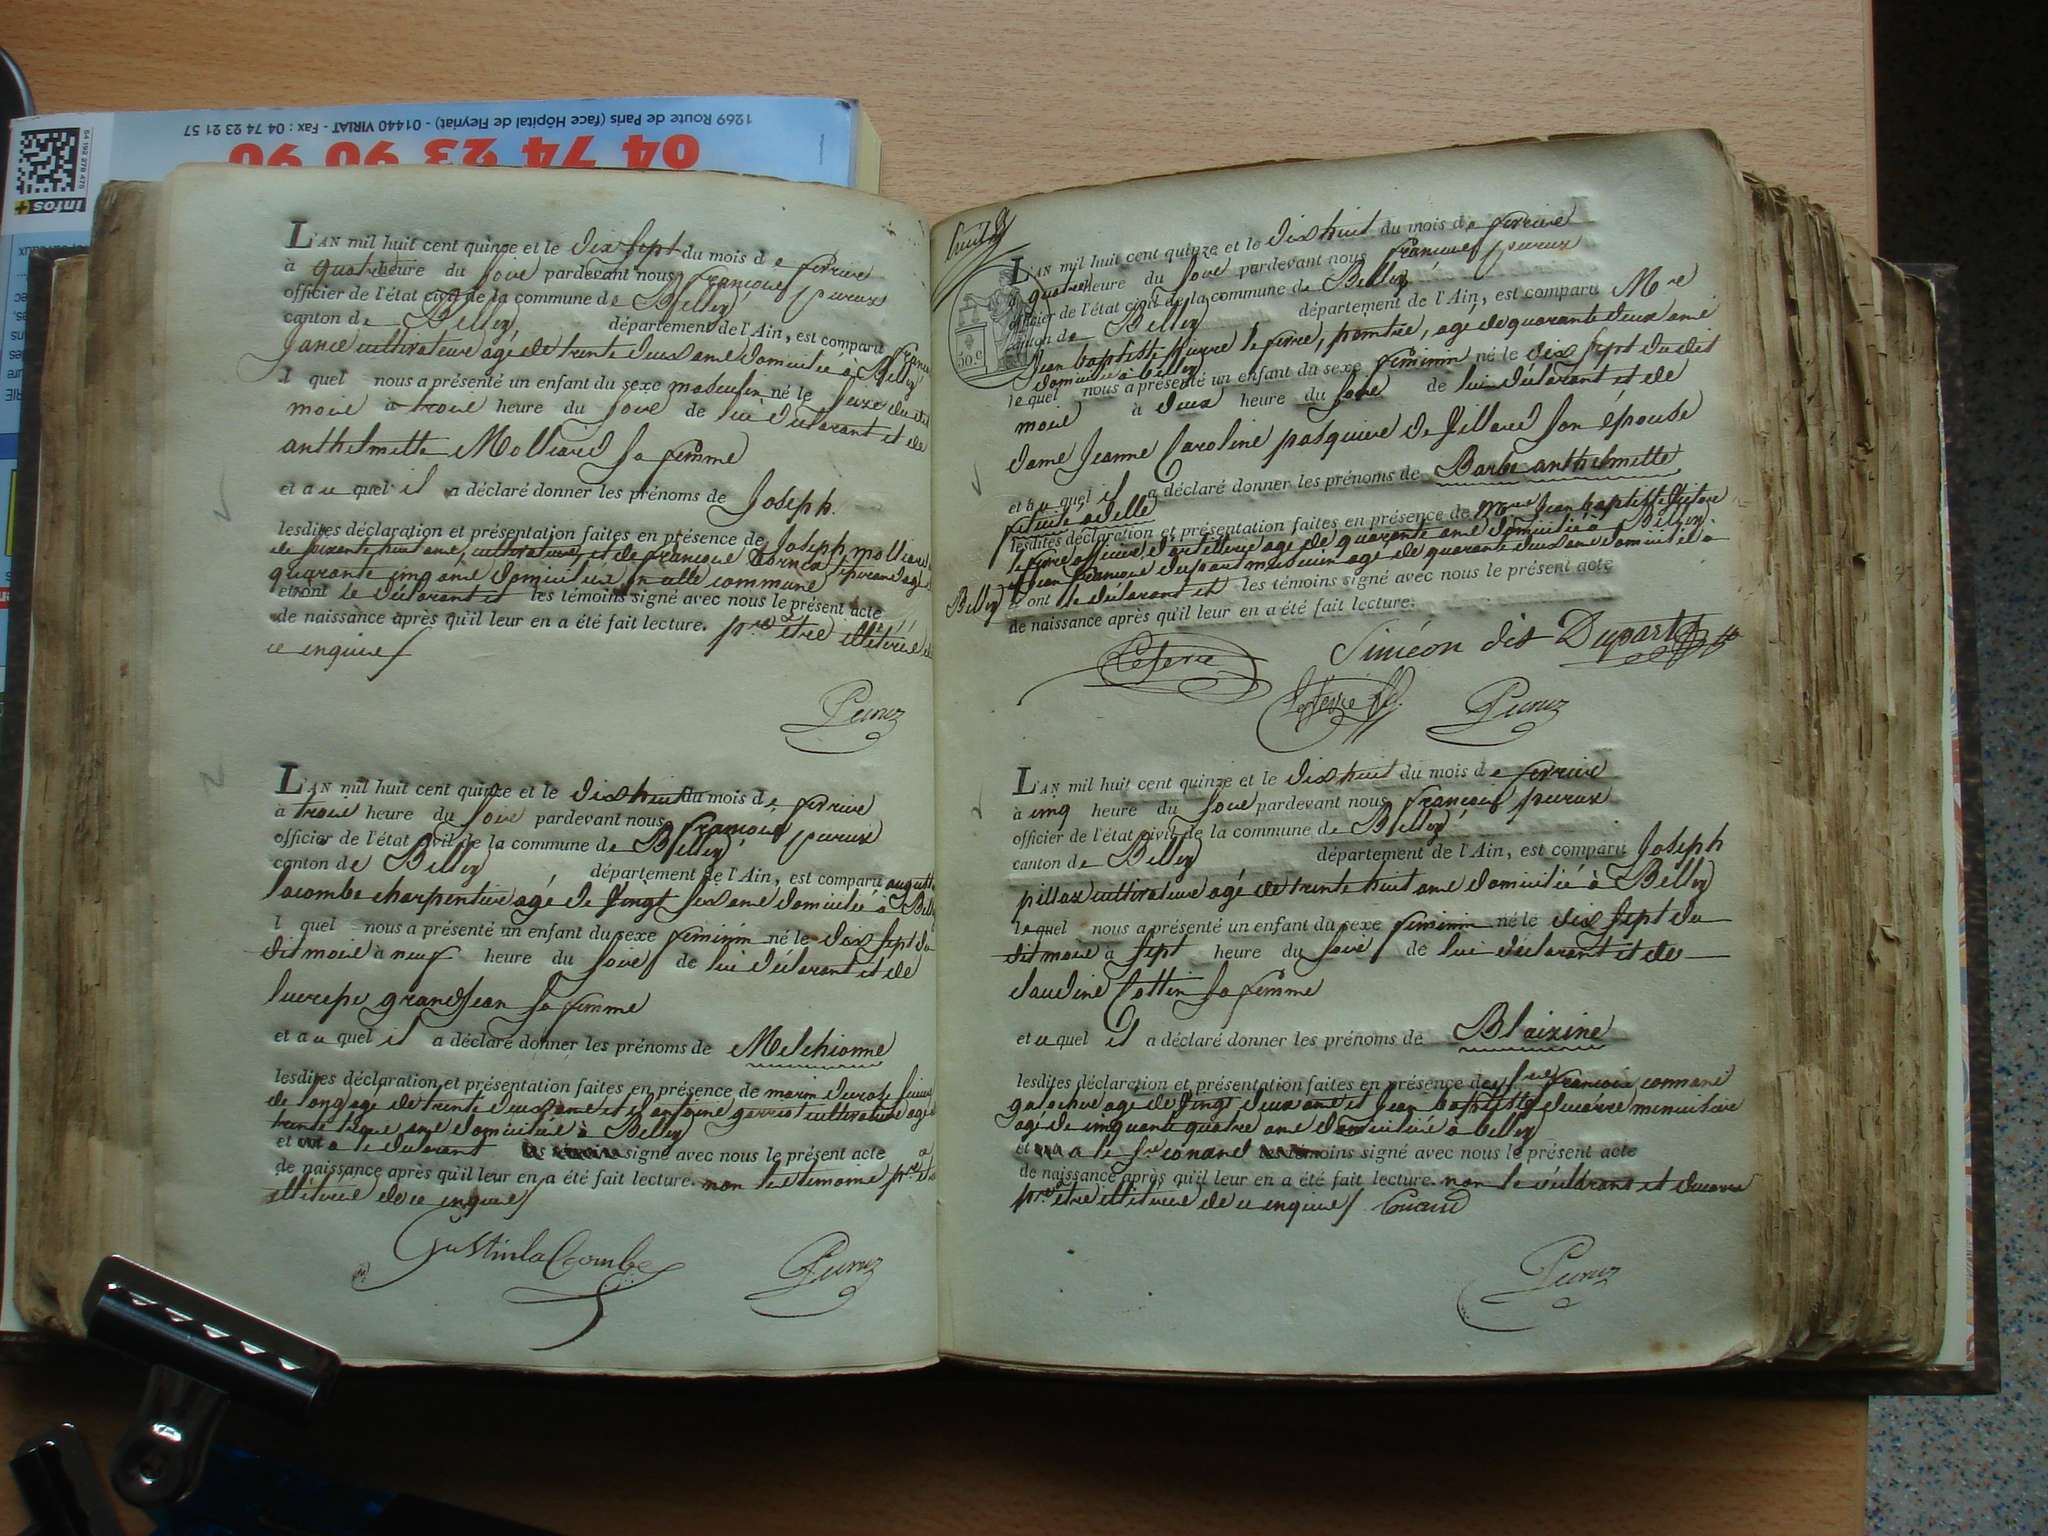 1269 Route de Paris (face Hôpital de Fleyriat) - 01440 VIRIAT - Fax : 04 74 23 21 57
04 74 23 90 90
infos+
L'AN mil huit cent quinze et le dix sept du mois de fevrier
à quatre heure du soir pardevant nous françois peruux
officier de l'état civil de la commune de Belley
canton de Belley département de l'Ain, est comparu
Jance cultivateur agé de trente deux ans domicilié à Belley
l quel nous a présenté un enfant du sexe masculin né le seize du dit
mois à trois heure du soir de lui déclarant et de
anthelmette Molliard sa femme
et au quel il a déclaré donner les prénoms de Joseph.
lesdites déclaration et présentation faites en présence de Joseph molliard
de soixante huit ans, cultivateur, et de françois agé
quarante cinq ans domiciliés en cette commune
et ont le déclarant et les témoins signé avec nous le présent acte
de naissance après qu'il leur en a été fait lecture. pre être illitéré
ce enquis
Peruuz
L'AN mil huit cent quinze et le dix huit du mois de fevrier
à trois heure du soir pardevant nous françois peruux
officier de l'état civil de la commune de Belley
canton de Belley département de l'Ain, est comparu augustin
lacombe charpentier agé de vingt six ans domicilié à Belley
l quel nous a présenté un enfant du sexe feminin né le dix sept du
dit mois à neuf heure du soir de lui déclarant et de
lucresse grandjean sa femme
et au quel il a déclaré donner les prénoms de Melchionne
lesdites déclaration et présentation faites en présence de marin
de long agé de trente deux ans et d'antoine cultivateur agé
trente ans domiciliés à Belley
et a le déclarant signé avec nous le présent acte
de naissance après qu'il leur en a été fait lecture. non les temoins pre
illitéré de ce enquis
Gustin la Coombe
Peruuz
50 c
L'AN mil huit cent quinze et le dix huit du mois de fevrier
à quatre heure du soir pardevant nous françois peruux
officier de l'état civil de la commune de Belley
canton de Belley département de l'Ain, est comparu Mre
Jean baptiste pierre le fevre, peintre, agé de quarante deux ans
domicilié à belley
le quel nous a présenté un enfant du sexe feminin né le dix sept du dit
mois à deux heure du soir de lui déclarant et de
dame Jeanne Caroline pasquier de Villard son épouse
et au quel il a déclaré donner les prénoms de Barbe anthelmette
adelle
lesdites déclaration et présentation faites en présence de Jean baptiste Victor
le fevre officier d'artillerie agé de quarante ans domicilié à Belley
et jean françois dupart medecin agé de quarante deux ans domicilié à
Belley et ont le déclarant et les témoins signé avec nous le présent acte
de naissance après qu'il leur en a été fait lecture.
Lefevre
Siméon dis Dupart
Lefevre
Peruuz
L'AN mil huit cent quinze et le dix huit du mois de fevrier
à cinq heure du soir pardevant nous françois peruux
officier de l'état civil de la commune de Belley
canton de Belley département de l'Ain, est comparu Joseph
pillax cultivateur agé de trente huit ans domicilié à Belley
le quel nous a présenté un enfant du sexe feminin né le dix sept du
dit mois à sept heure du soir de lui déclarant et de
claudine Cottin sa femme
et u quel il a déclaré donner les prénoms de Blaizine
lesdites déclaration et présentation faites en présence de sr françois connand
agé de vingt deux ans et jean baptiste ducarre
agé de cinquante quatre ans domiciliés à belley
et a le sr conand les témoins signé avec nous le présent acte
de naissance après qu'il leur en a été fait lecture. non le déclarant et ducarre
pre être illitéré de ce enquis
Peruuz